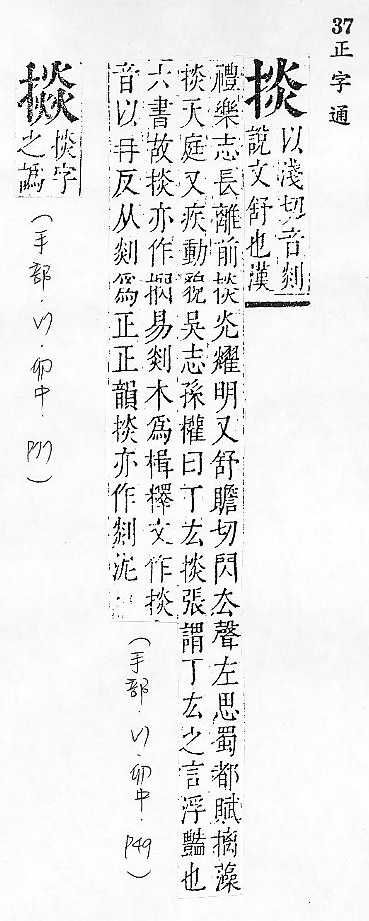 37正字通
掞
以淺切音剡
說文舒也漢
禮樂志長離前掞光耀明又舒贍切閃去聲左思蜀都賦摛藻
掞天庭又疾動貌吳志孫權曰丁厷掞張謂丁厷之言浮豔也
六書故掞亦作 易剡木爲楫釋文作掞
音以冉反从剡爲正正韻掞亦作剡泥
(手部.以.卯中.P49)
掞字
之譌
(手部.以.卯中.P77)